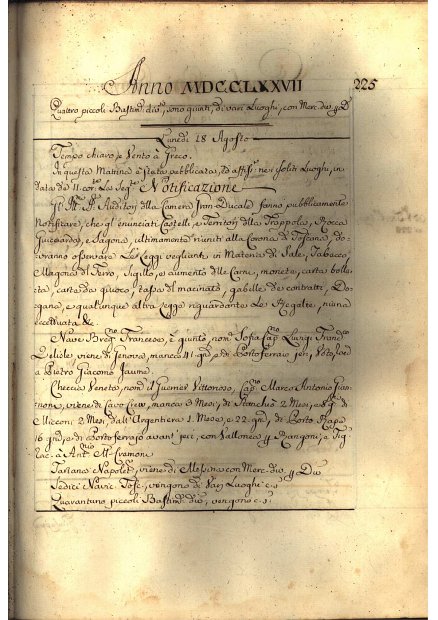 Anno MDCCLXXVII 225
Quattro piccoli Bastim. div., sono giunti, di vari Luoghi, con Merc. div. p D.
Lunedì 18 Agosto
Tempo chiaro, e Vento à Greco.
In questa Matina è stata pubblicata, ed affissa nei soliti Luoghi, in
data de 11 cor. la Seg. Notificazione
Auditori della Camera Gran Ducale fanno pubblicamente
Notificare, che gl'enunciati Castelli, e Territori della Trappola, Rocca
Guicciarda, e Sagona, ultimamente riuniti alla Corona di Toscana, do-
vranno osservare le Leggi veglianti in Materia di Sale, Tabacco,
Magona del Ferro, Sigillo, e aumento delle Carni, monete, carta bolla-
ta, carte da giuoco, tassa del macinato, gabelle de contratti, Do-
gana, e qualunque altra legge riguardante le Regalie, niuna
eccettuata &c.
Nave Francese, è giunto, nom. Sofia Cap. Luigi
viene di Genova, manca 41 gni, e di Portoferraio jeri,
a Pietro Giacomo Jaume.
Checcia Veneta, nom. il Guerrier Vittorioso, Cap. Marco Antonio
viene di Cavo Creso, manca 3 Mesi, di Stanchio 2 Mesi, e di
Micconi 2 Mesi, dall'Argentiera 1 Mese, e 22 gni, di Porto
16 gni, e di Portoferraio avant'jeri, con Vallonea p Rangoni, e
a Ant. M. Cramone
Tartana Napolet., viene di Messina con Merc. div. p Div.
Sedici Navic. Tosc. vengono di Varj Luoghi c. s.
Quarantuno piccoli Bastim. div., vengono c. s.